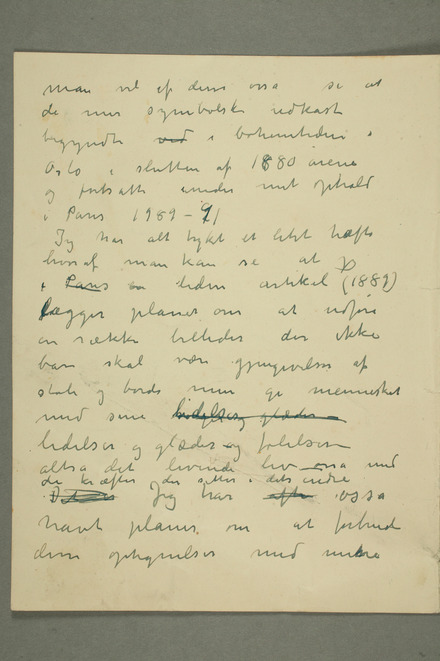 man vil af dem ossa se at
de mer symbolske udkast
begyndte ved i bohemtiden i
Oslo i slutten af 1880 årene
og fortsatte under mit ophold
i Paris 1989 – 91
Jeg har alt trykt et litet hæfte
hvoraf man kan se at jeg
i Paris en liden artikel (1889)
lægger planer om at udføre
en række billeder der ikke
bare skal være gjengivelser af
stole og borde men gi mennesket
med sine lidelser og glæder
lidelser og glæder og følelser
altsa det levende liv – ossa med
de kræfter der sitter i dets indre
Jeg har efter ossa
havt planer om at forbinde
dem optegnelser med mine